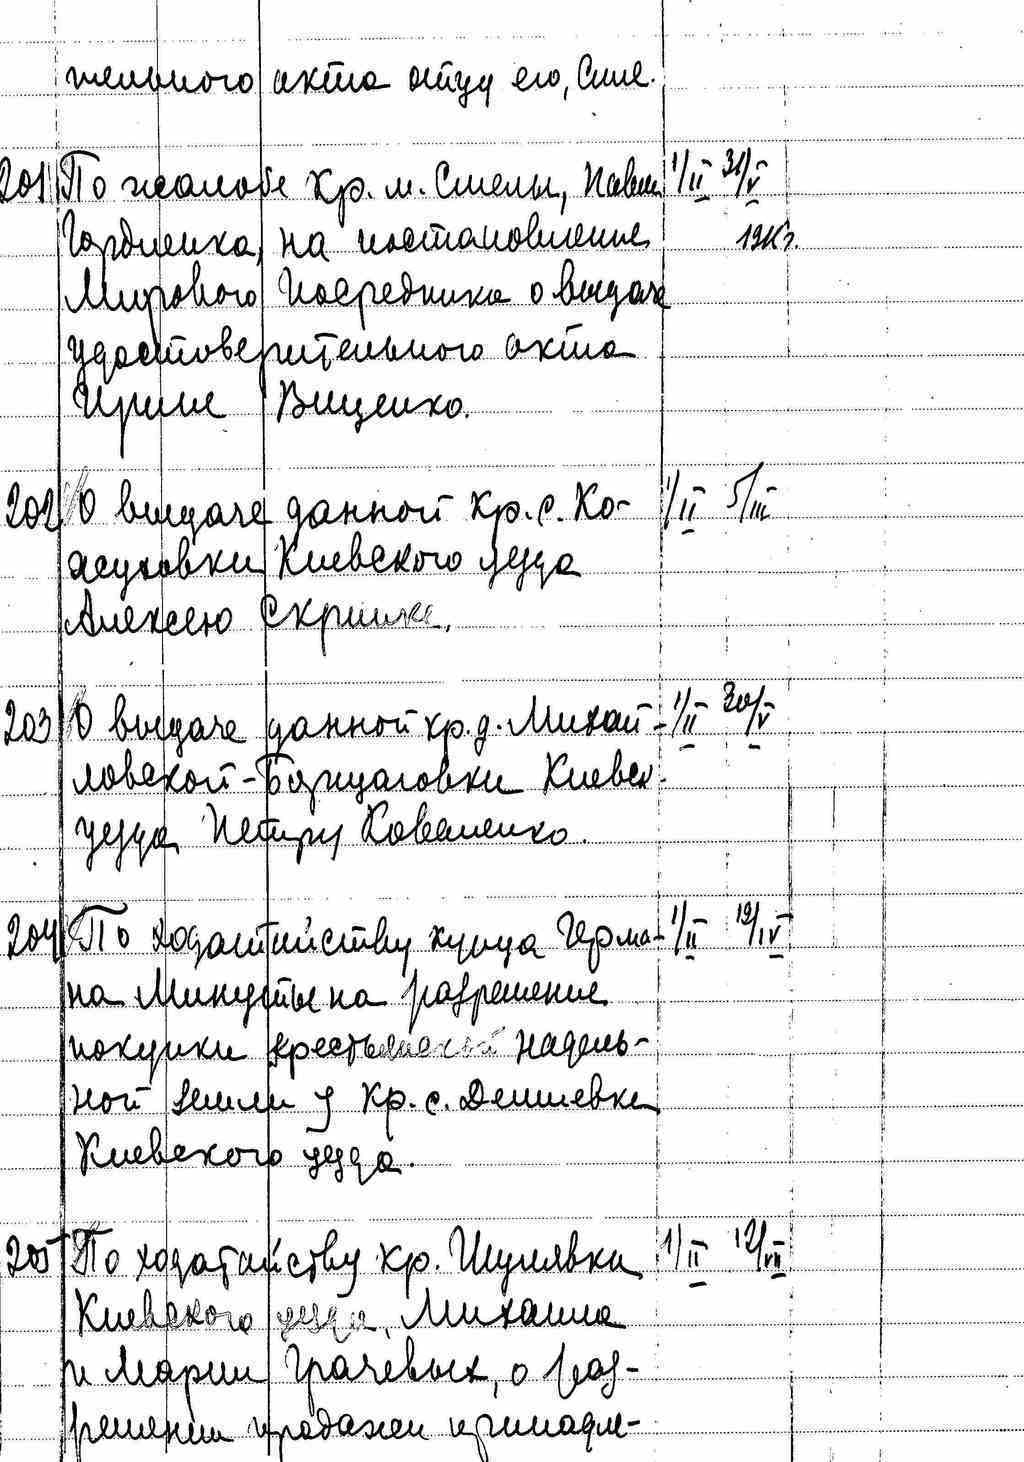 тельного акта отцу его, Силе.
201 По жалобе кр. м. Смелы, Павла 1/II 31/V
Гордиенка, на постановление 191
Мирового Посредника о выдаче
удостоверительного акта
Ирине Виценко.
202 О выдаче данной кр. с. Ко- 1/II 5/III
жуховки Киевского уезда
Алексею
203 О выдаче данной кр. д. Михай- 1/II 20/V
ловской-Борщаговки Киевск.
уезда Петру Коваленко.
204 По ходатайству купца Герма- 1/II 12/IV
на на разрешение
покупки крестьянской надель-
ной земли у кр. с. Демиевка
Киевского уезда.
205 По ходатайству кр. Шулявка 1/II 12/VII
Киевского уезда, Михаила
и Марии Грачевых, о раз-
решении продажи принадле-